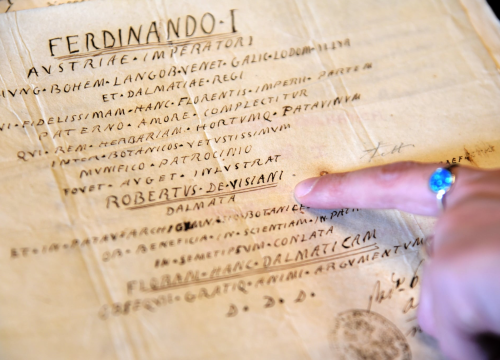 FERDINANDO·I
AVSTRIAE·IMPERATORI
HVNG·BOHEM·LANGOB·VENET·GALIC·LODOM·
ET·DALMATIAE·REGI
FIDELISSIMAM·HANC·FLORENTIS·IMPERII·PARTEM
PATERNO·AMORE·COMPLECTITVR
QVI·REM·HERBARIAM·HORTVMQ·PATAVINVM
INTER·BOTANICOS·VETVSTISSIMVM
MVNIFICO·PATROCINIO
FOVET·AVGET·INLVSTRAT
ROBERTVS·DE·VISIANI
DALMATA
ET·IN·PATAV·
OB·BENEFICIA·IN·SCIENTIAM·IN·
IN·SEMETIPSVM·CONLATA
FLORAM·HANC·DALMATICAM
GRATIQ·ANIMI·ARGVMENTVM
D.D.D.